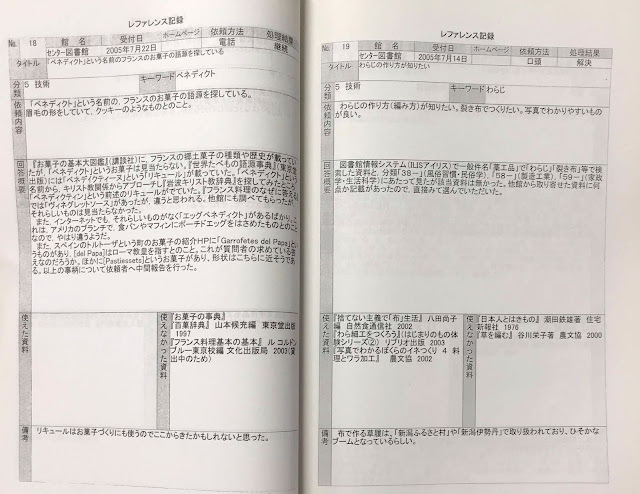 レファレンス記録
No. 18 館名 受付日 ホームページ 依頼方法 処理結果
センター図書館 2005年7月22日 電話 継続
タイトル 「ベネディクト」という名前のフランスのお菓子の語源を探している
分類 5 技術 キーワード ベネディクト
依頼内容
「ベネディクト」という名前の、フランスのお菓子の語源を探している。
眉毛の形をしていて、クッキーのようなものとのこと。
回答概要
『お菓子の基本大図鑑』(講談社)に、フランスの郷土菓子の種類や歴史が載ってい
たが、「ベネディクト」というお菓子は見当たらない。『世界たべもの語源事典』(東京堂
出版)には「ベネディクティーヌ」という「リキュール」が載っていた。「ベネディクト」という
名前から、キリスト教関係からアプローチし『岩波キリスト教辞典』を探してみたところ、
「ベネディクティン」という前述のリキュールがでていた。『フランス料理のなぜに答える』
では「ヴィネグレットソース」があったが、違うと思われる。他館にも調べてもらったが、
それらしいものは見当たらなかった。
また、インターネットでも、それらしいものがなく「エッグベネディクト」があるばかり。こ
れは、アメリカのブランチで、食パンやマフィンにポーチドエッグをはさめたものとのこと
なので、やはり違うようだ。
また、スペインのトルトーザという町のお菓子の紹介HPに「Garrofetes del Papa」とい
うものがあり、[del Papa]はローマ教皇を指すとのこと。これが質問者の求めている答
えなのだろうか。ほかに[Pastissets]というお菓子があり、形状はこちらに近そうであ
る。以上の事柄について依頼者へ中間報告を行った。
使えた資料
使えなかった資料
『お菓子の事典』
『百菓辞典』 山本候充編 東京堂出版
1997
『フランス料理基本の基本』 ル コルドン
ブルー東京校編 文化出版局 2003(貸
出中のため)
備考
リキュールはお菓子づくりにも使うのでここからきたかもしれないと思った。
レファレンス記録
No. 19 館名 受付日 ホームページ 依頼方法 処理結果
センター図書館 2005年7月14日 口頭 解決
タイトル わらじの作り方が知りたい
分類 5 技術 キーワード わらじ
依頼内容
わらじの作り方(編み方)が知りたい。裂き布でつくりたい。写真でわかりやすいもの
が良い。
回答概要
図書館情報システム(ILISアイリス)で一般件名「藁工品」で「わらじ」「裂き布」等で検
索した資料と、分類「38-」(風俗習慣・民俗学)、「58-」(製造工業)、「59-」(家政
学・生活科学)にあたって見たが該当資料は無かった。他館から取り寄せた資料に何
点か記載があったので、直接みて選んでいただいた。
使えた資料
『捨てない主義で「布」生活』 八田尚子
編 自然食通信社 2002
『わら細工をつくろう』(はじめりのもの体
験シリーズ②) リブリオ出版 2003
『写真でわかるぼくらのイネつくり 4 料
理とワラ加工』 農文協 2002
使えなかった資料
『日本人とはきもの』 潮田鉄雄著 住宅
新報社 1976
『草を編む』 谷川栄子著 農文協 2000
備考
布で作る草履は、「新潟ふるさと村」や「新潟伊勢丹」で取り扱われており、ひそかな
ブームとなっているらしい。